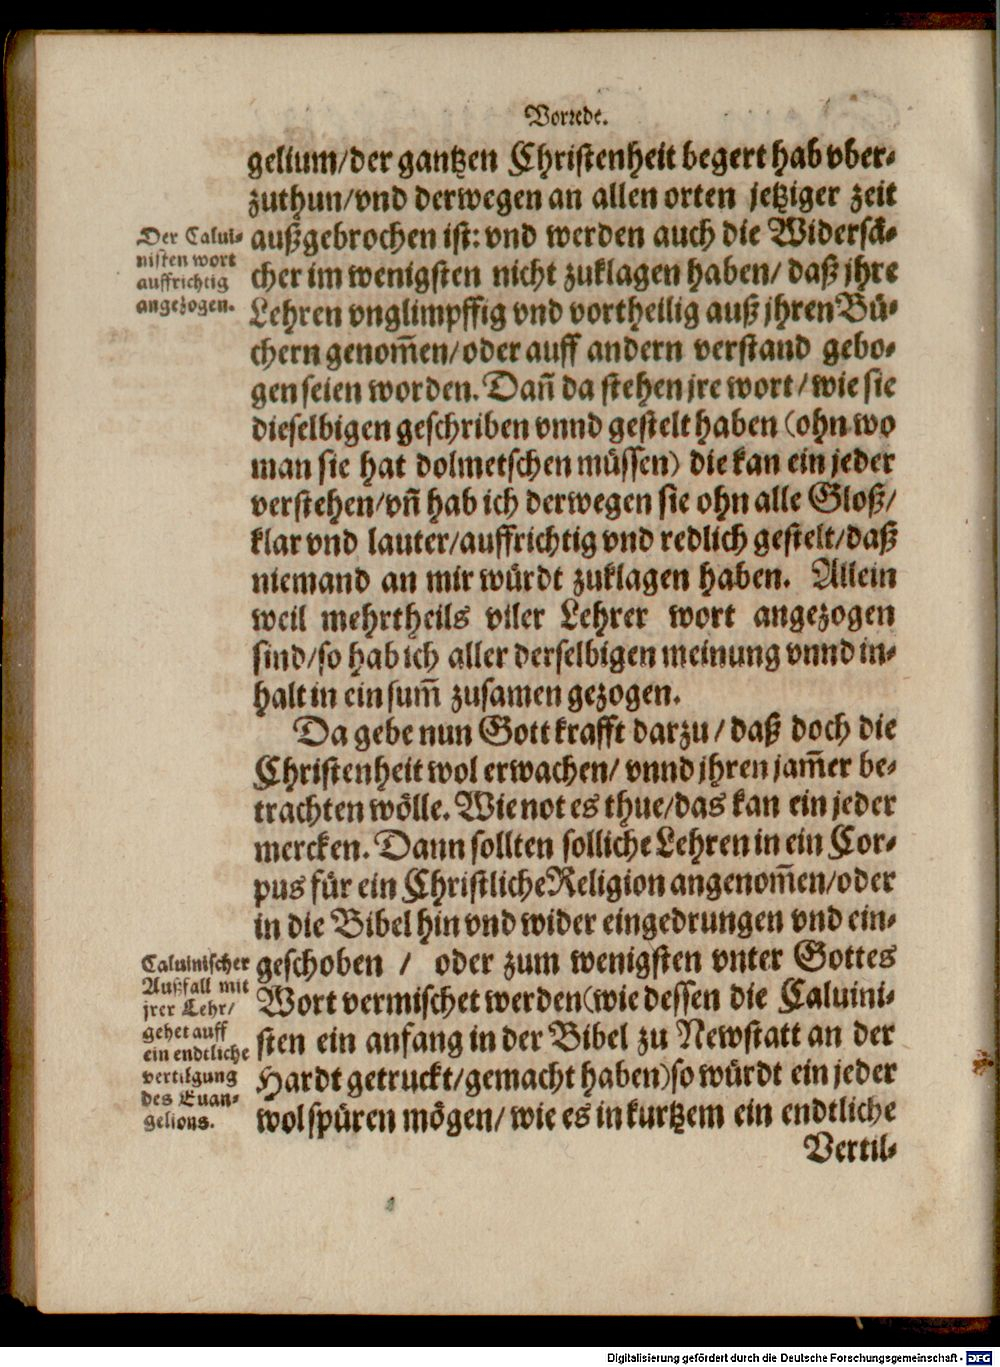 Vorrede.
gelium/der gantzen Christenheit begert hab vber-
zuthun/vnd derwegen an allen orten jetziger zeit
Der Calui-
nisten wort
auffrichtig
angezogen.
außgebrochen ist: vnd werden auch die Widersä-
cher im wenigsten nicht zuklagen haben/ daß jhre
Lehren vnglimpffig vnd vortheilig auß jhren Bü-
chern genom̃en/oder auff andern verstand gebo-
gen seien worden. Dañ da stehen jre wort/wie sie
dieselbigen geschriben vnnd gestelt haben (ohn wo
man sie hat dolmetschen müssen) die kan ein jeder
verstehen/vñ hab ich derwegen sie ohn alle Gloß/
klar vnd lauter/auffrichtig vnd redlich gestelt/daß
niemand an mir würdt zuklagen haben. Allein
weil mehrtheils viler Lehrer wort angezogen
sind/so hab ich aller derselbigen meinung vnnd in-
halt in ein sum̃ zusamen gezogen.
Da gebe nun Gott krafft darzu/daß doch die
Christenheit wol erwachen/ vnnd jhren jam̃er be-
trachten wölle. Wie not es thue/das kan ein jeder
mercken. Dann sollten solliche Lehren in ein Cor-
pus für ein Christliche Religion angenom̃en/oder
in die Bibel hin vnd wider eingedrungen vnd ein-
Caluinischer
Außfall mit
jrer Lehr/
gehet auff
ein endtliche
vertilgung
des Euan-
gelions.
geschoben / oder zum wenigsten vnter Gottes
Wort vermischet werden (wie dessen die Caluini-
sten ein anfang in der Bibel zu Newstatt an der
Hardt getruckt/gemacht haben) so würdt ein jeder
wol spüren mögen/ wie es in kurtzem ein endtliche
Vertil-
Digitalisierung gefördert durch die Deutsche Forschungsgemeinschaft - DFG